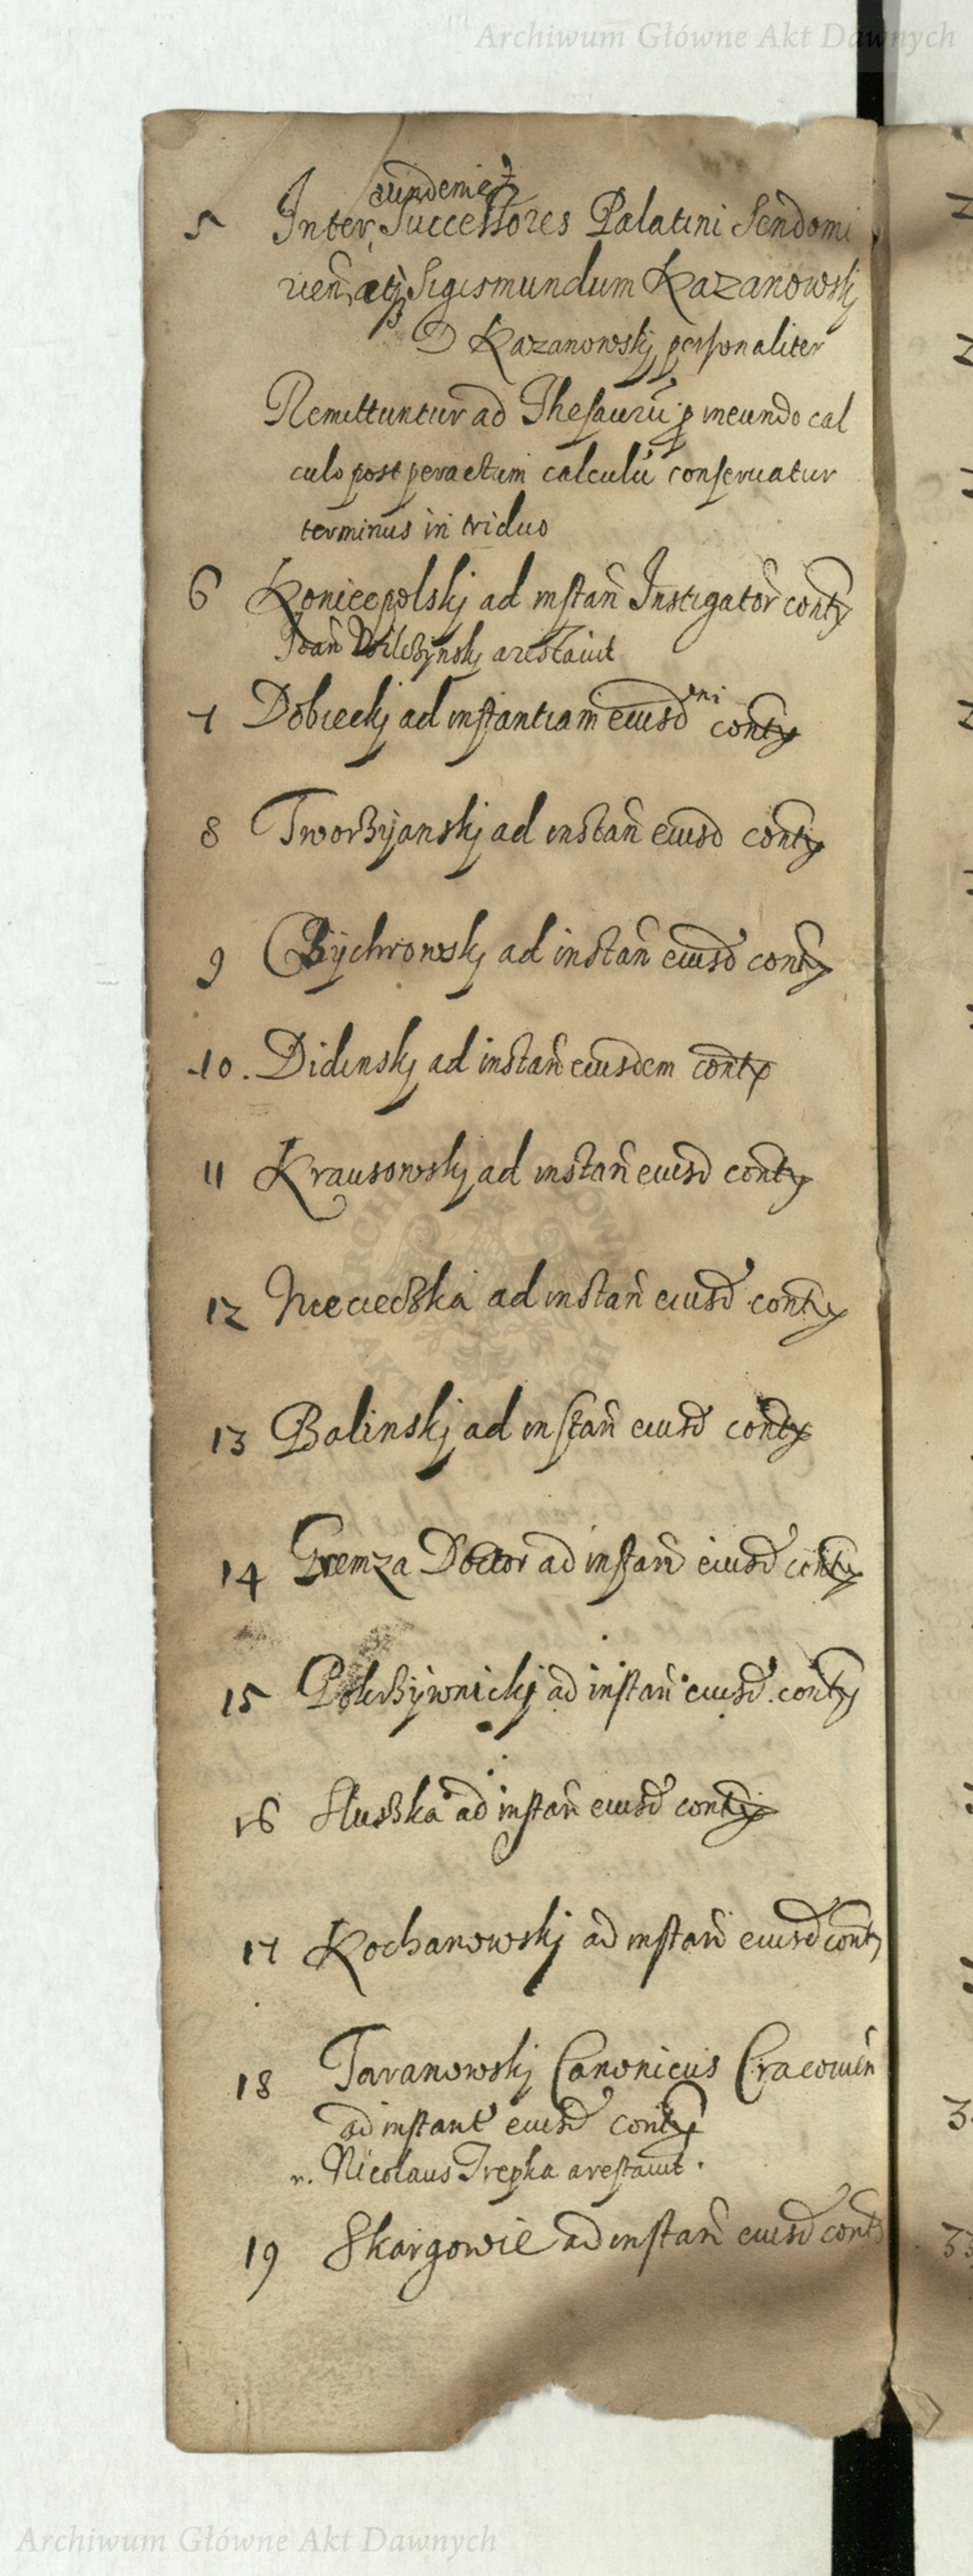 Archiwum Główne Akt Dawnych
eundemq
5 Inter Successores Palatini Sendomi
rien, atq Sigismundum Kazanowskj
D Kazanowskj personaliter
Remittuntur ad Thesaurũ p ineundo cal
culo post peractum calculũ conservatur
terminus in triduo
6 Koniecpolskj ad instañ Instigator cont
Joañ Wilczynskj arestavit
7 Dobieckj ad instantiam eiusd cont
8 Tworzyanskj ad instañ eiusd cont
9 Bychrowskj ad instañ eiusd cont
10. Didinskj ad instañ eiusdem cont
11 Krausowskj ad instañ eiusd cont
12 ad instañ eiusd cont
13 Balinskj ad instañ eiusd cont
14 Gremza Doctor ad instañ eiusd cont
15 ad instañ eiusd cont
16 Sluszka ad instañ eiusd cont
17 Kochanowskj ad instañ eiusd cont
18 Taranowskj Canonicus Cracovieñ
ad instant eiusd cont
n. Nicolaus Trepka arestavit.
19 Skargowie ad instañ eiusd cont
Archiwum Główne Akt Dawnych